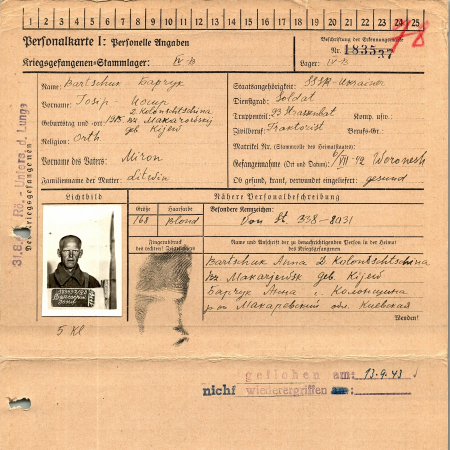 1 2 3 4 5 6 7 8 9 10 11 12 13 14 15 16 17 18 19 20 21 22 23 24 25
Personalkarte I: Personelle Angaben
Kriegsgefangenen-Stammlager: IV-B
Beschriftung der Erkennungsmarke
Nr. 183537
Lager: IV-B
Name: Bartschuk Барчук
Vorname: Josip Иосип
Geburtstag und -ort: 1915 2. Kolontschtschina
Makarowskij
geb Kijew
Religion: Orth
Vorname des Vaters: Miron
Familienname der Mutter: Litwin
Staatsangehörigkeit: SSSR-Ukrainer
Dienstgrad: Soldat
Truppenteil: 23 Komp. usw.:
Zivilberuf: Traktorist Berufs-Gr.:
Matrikel Nr. (Stammrolle des Heimatstaates):
Gefangennahme (Ort und Datum): 6/VII 42 Woronesh
Ob gesund, krank, verwundet eingeliefert: gesund
31.8.43 Rö.- Unters. d. Lunge
Des Kriegsgefangenen
Lichtbild
Nähere Personalbeschreibung
Größe
Haarfarbe
Besondere Kennzeichen:
168
Blond
Von St. 338-8031
Fingerabdruck
des rechten Zeigefingers
Name und Anschrift der zu benachrichtigenden Person in der Heimat
des Kriegsgefangenen
Bartschuk Anna 2 Kolontschtschina
Makarjewsk geb. Kijew
Барчук Анна с. Колонщина
р-он Макаревский обл. Киевская
Wenden!
5 Kl
geflohen am: 13.9.43
nicht wiederergriffen am: